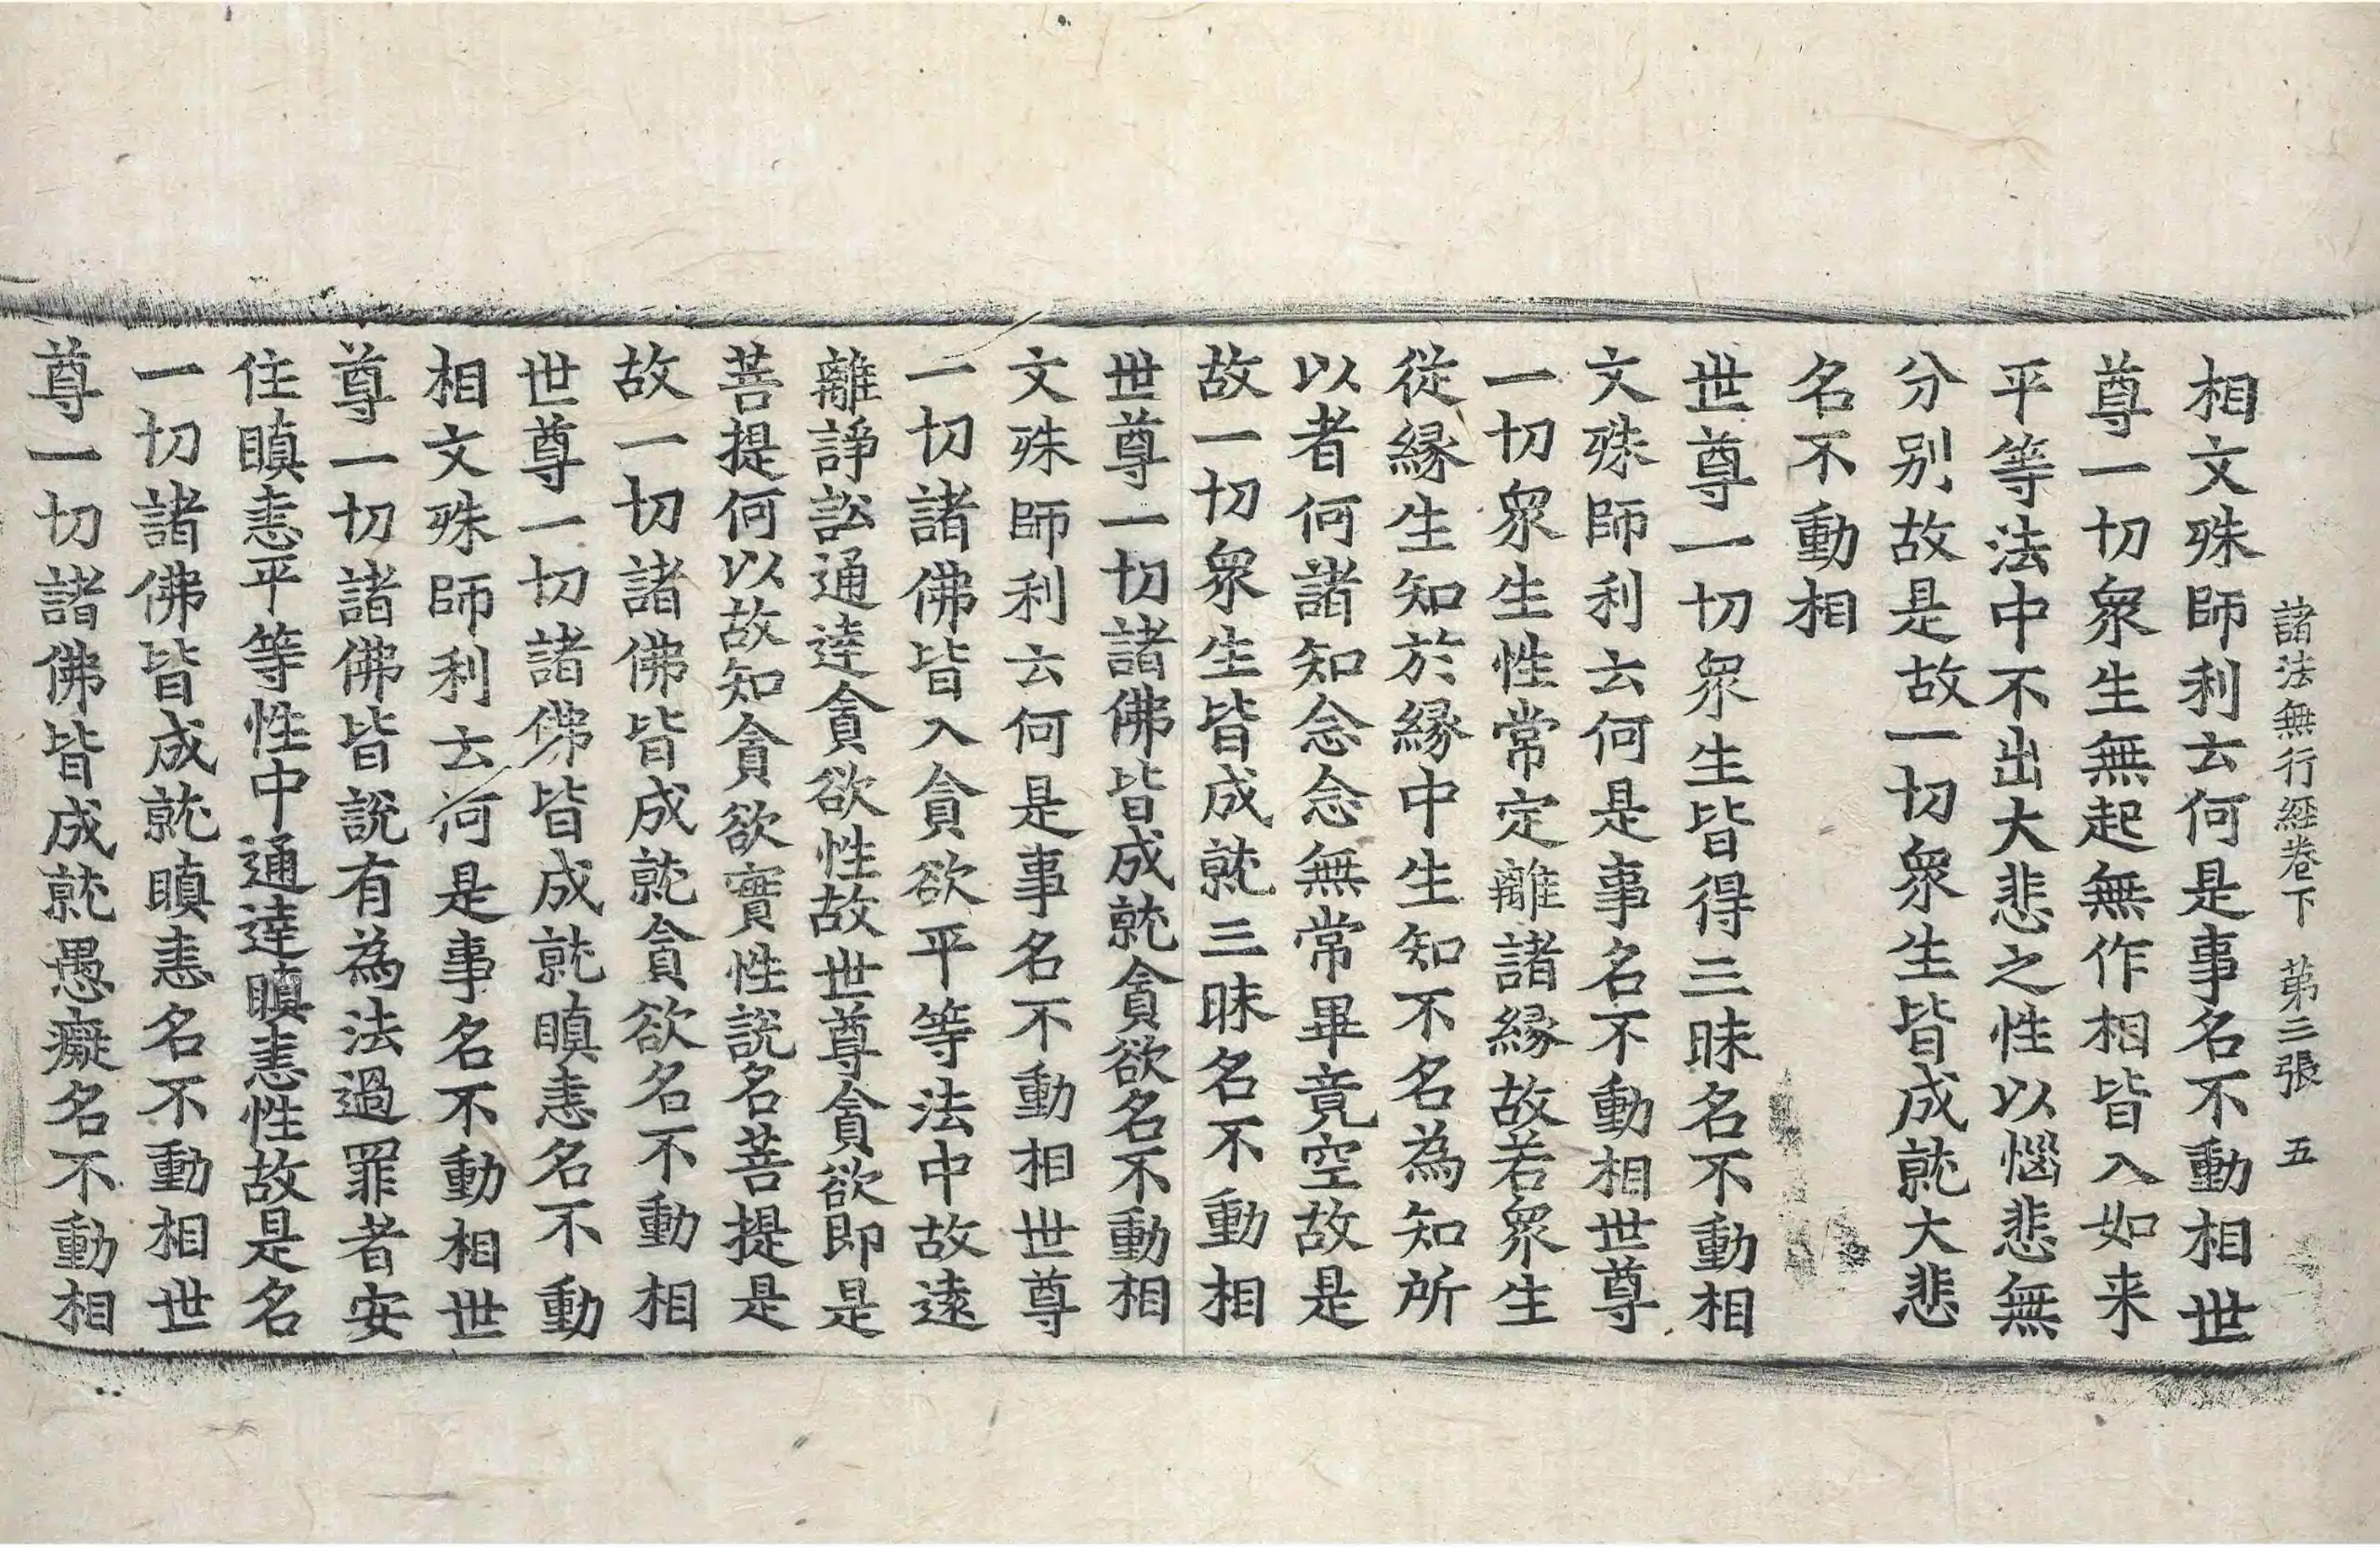 諸法無行經卷下 第三張 五
相文殊師利云何是事名不動相世
尊一切衆生無起無作相皆入如来
平等法中不出大悲之性以惱悲無
分别故是故一切衆生皆成就大悲
名不動相
世尊一切衆生皆得三昧名不動相
文殊師利云何是事名不動相世尊
一切衆生性常定離諸縁故若衆生
從縁生知於縁中生知不名為知所
以者何諸知念念無常畢竟空故是
故一切衆生皆成就三昧名不動相
世尊一切諸佛皆成就貪欲名不動相
文殊師利云何是事名不動相世尊
一切諸佛皆入貪欲平等法中故遠
離諍訟通達貪欲性故世尊貪欲即是
菩提何以故知貪欲實性說名菩提是
故一切諸佛皆成就貪欲名不動相
世尊一切諸佛皆成就瞋恚名不動
相文殊師利云何是事名不動相世
尊一切諸佛皆說有為法過罪者安
住瞋恚平等性中通達瞋恚性故是名
一切諸佛皆成就瞋恚名不動相世
尊一切諸佛皆成就愚癡名不動相